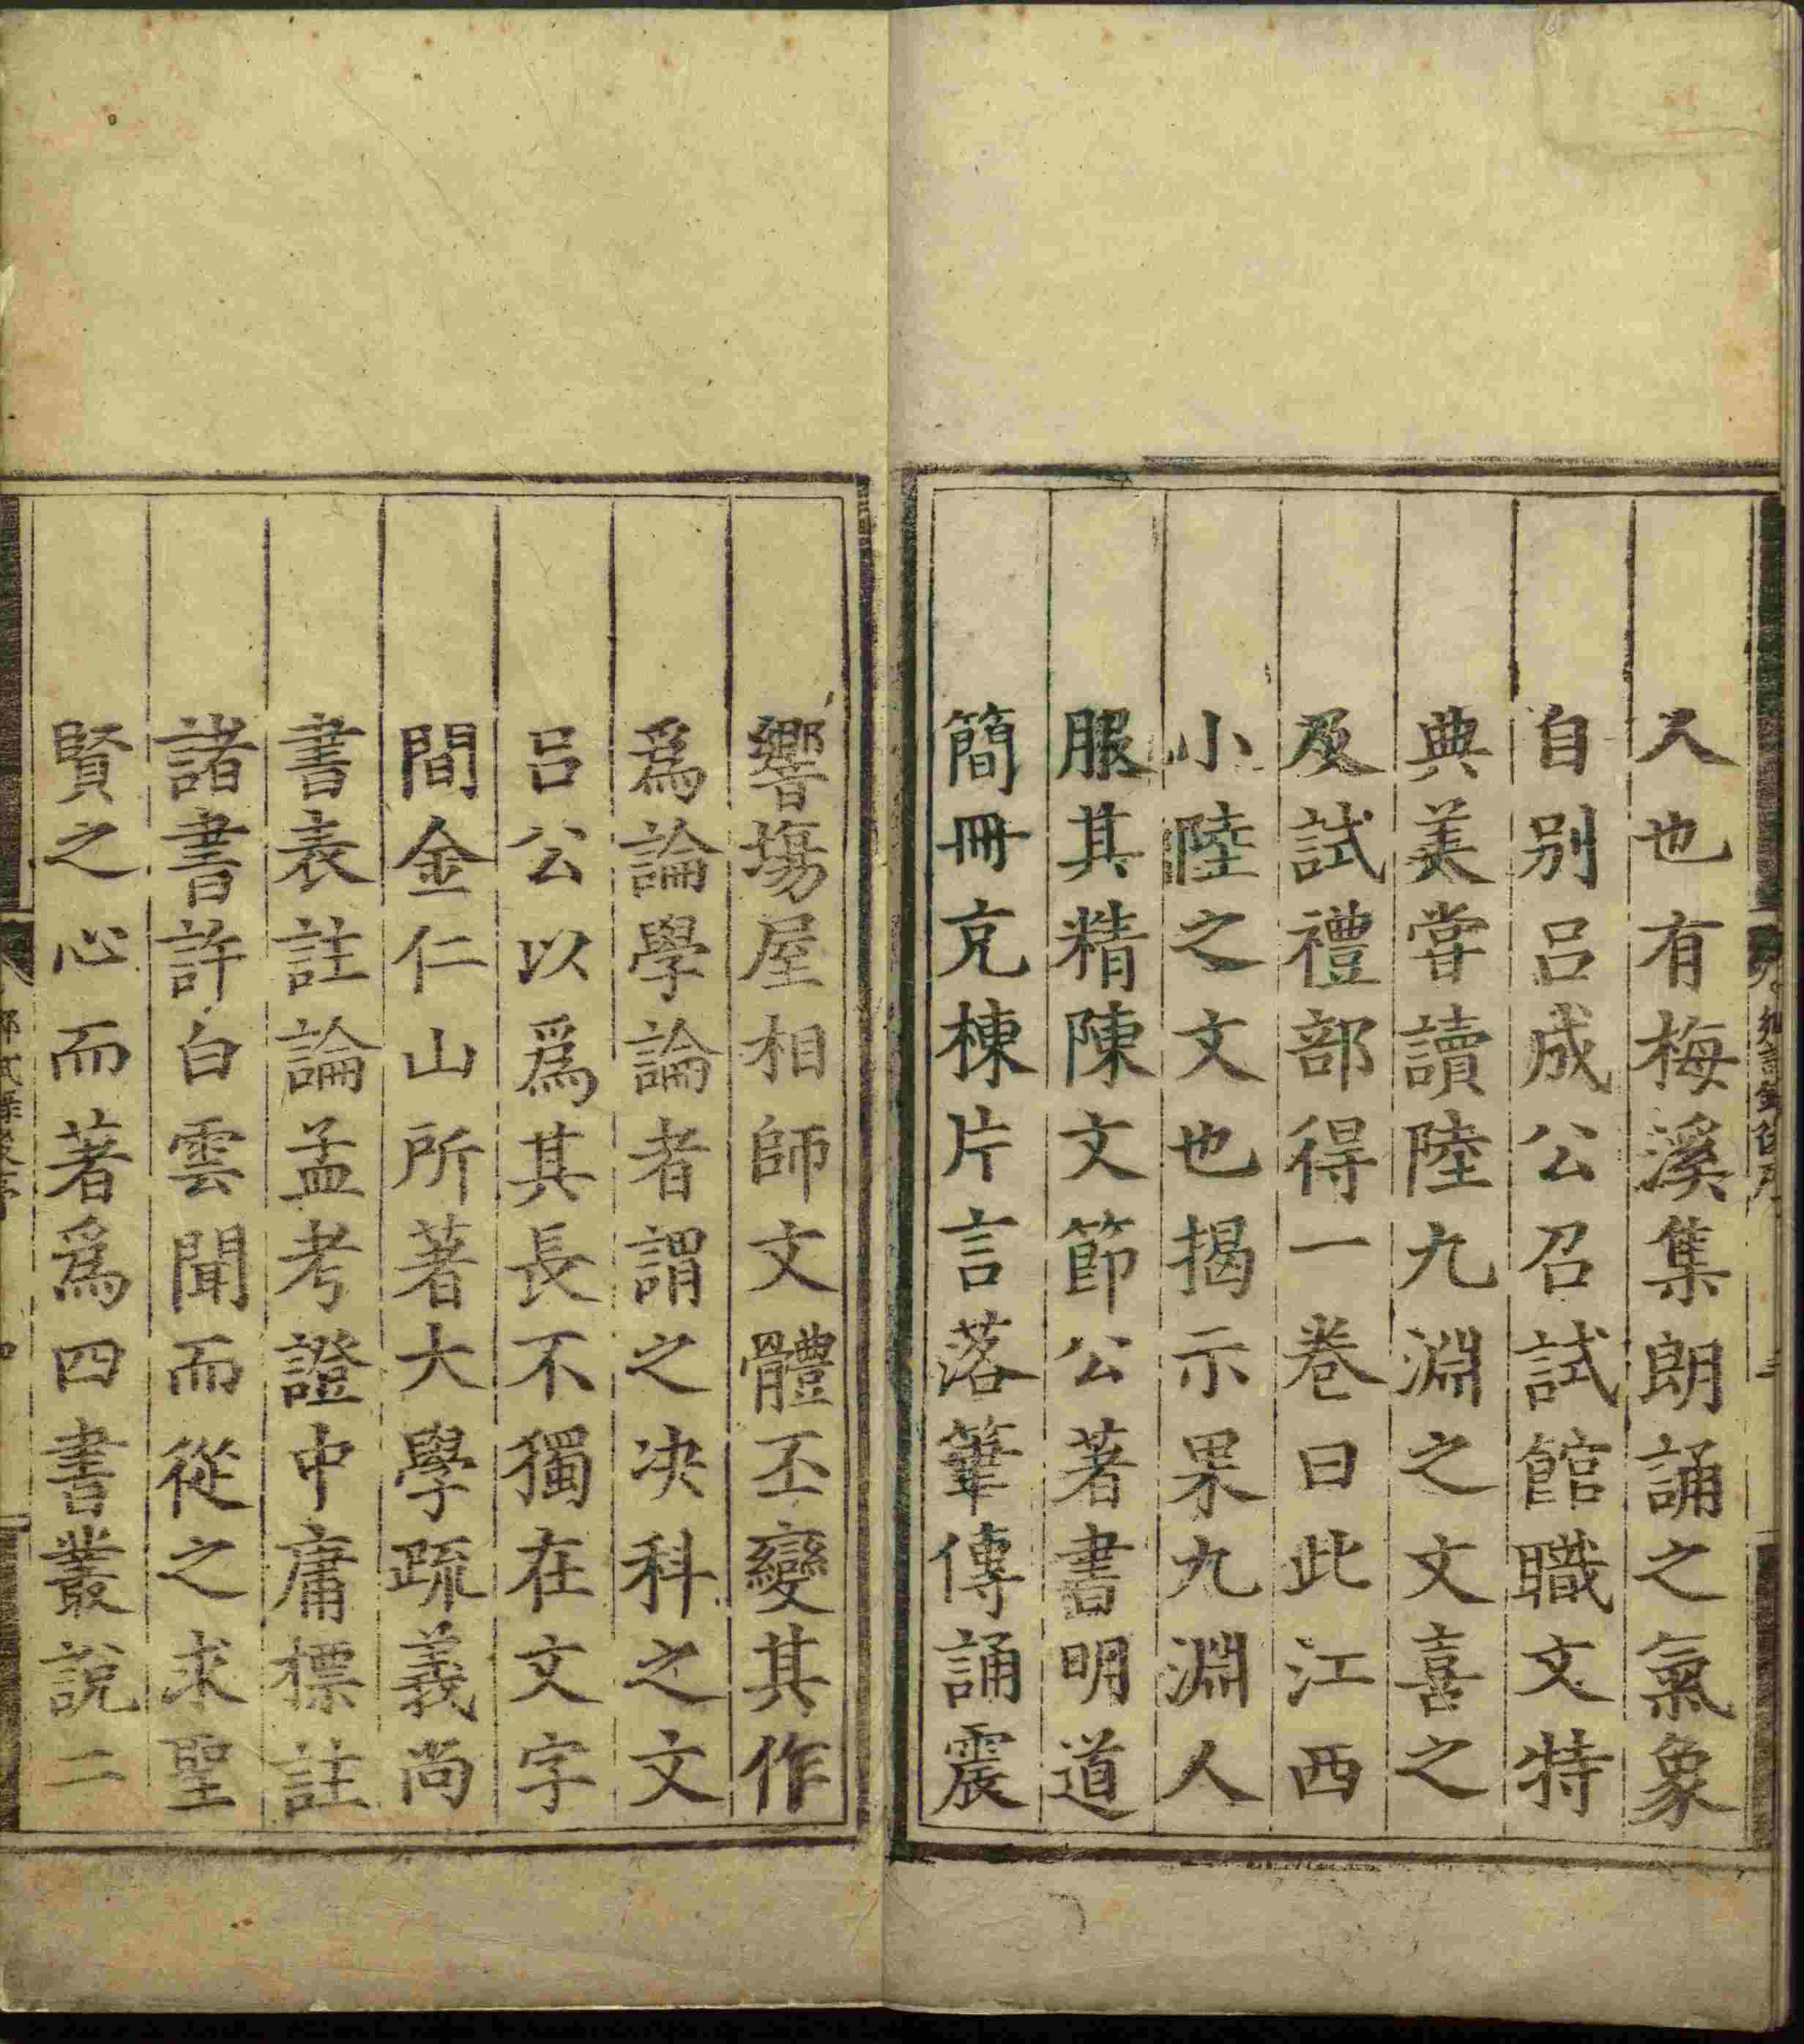 人也有梅溪集朗誦之氣象
自别呂成公召試館職文特
典美嘗讀陸九淵之文喜之
及試禮部得一卷曰此江西
小陸之文也揭示果九淵人
服其精陳文節公著書明道
簡冊充棟片言落筆傳誦震
響塲屋相師文體丕變其作
爲論學論者謂之决科之文
呂公以爲其長不獨在文字
間金仁山所著大學疏義尚
書表註論孟考證中庸標註
諸書許白雲聞而從之求聖
賢之心而著爲四書叢說二